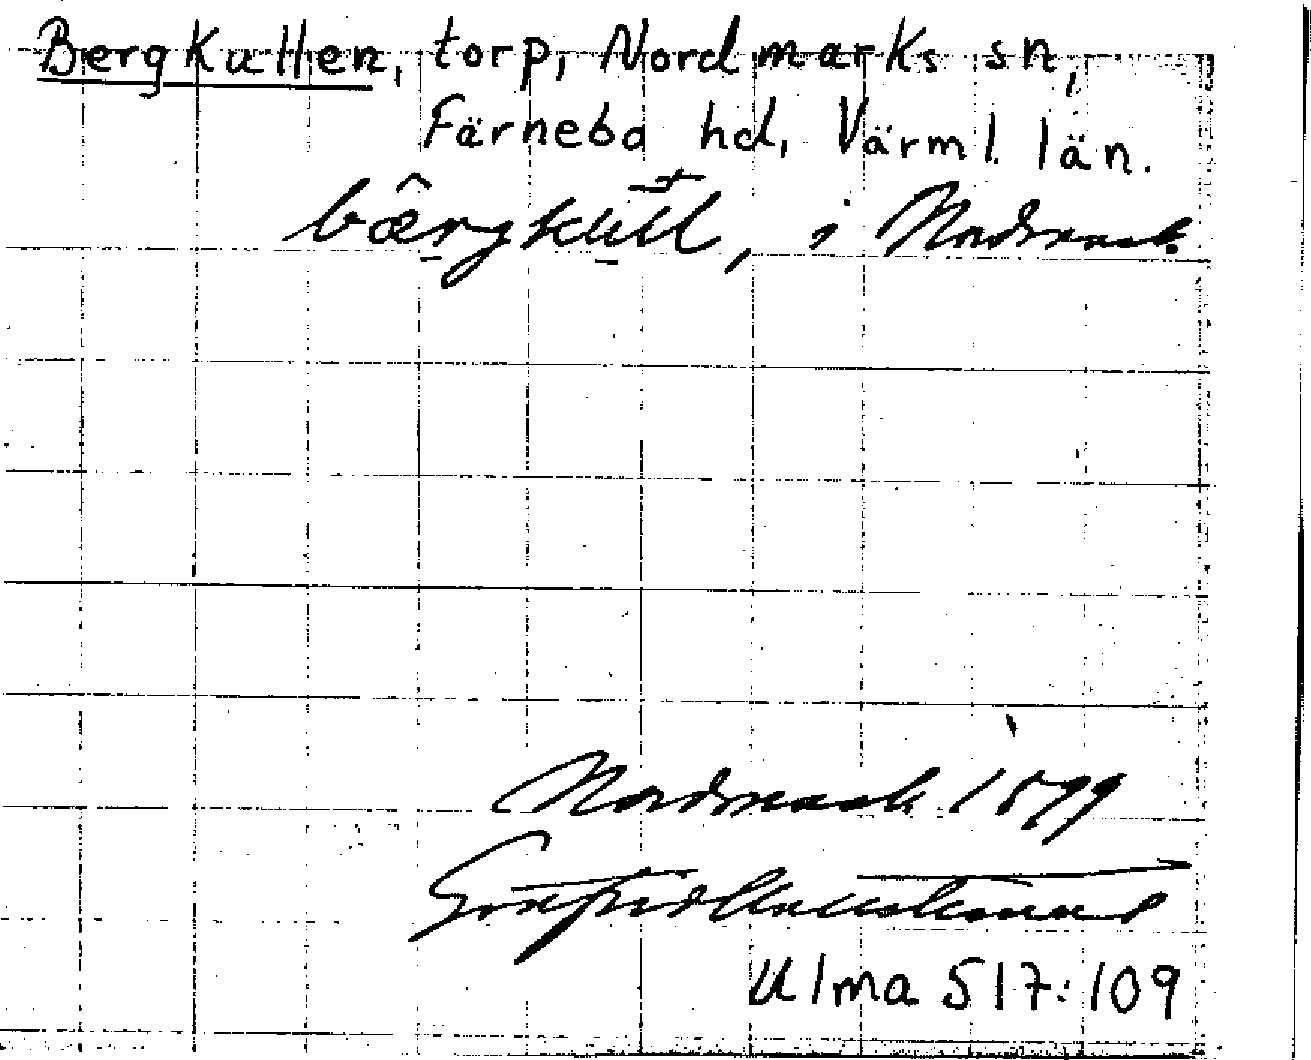 Bergkullen, torp, Nordmarks sn,
Färnebo hd, Värml. län.
i Nordmark.
Nordmark 1899
Gottfrid Kallstenius
Ulma 517:109